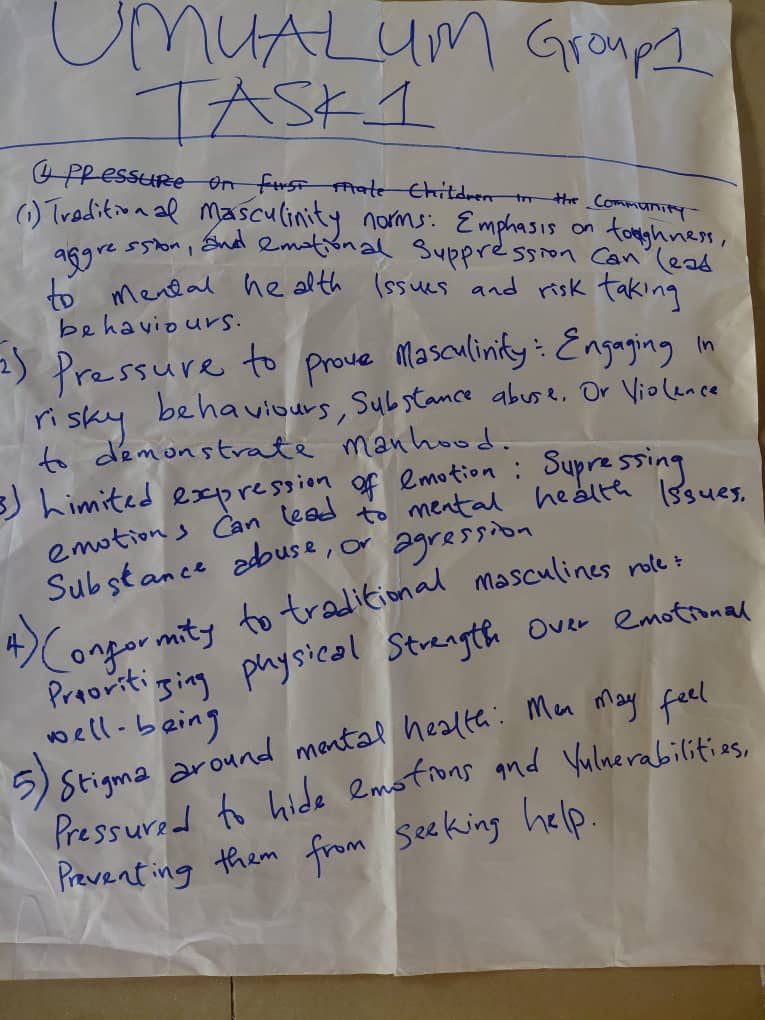 UMUALUM Group1
TASK 1
(1) PRESSURE on first male Children in the Community
(1) Traditional Masculinity norms: Emphasis on toughness,
aggression, and emotional Suppression Can lead
to mental health Issues and risk taking
behaviours.
2) Pressure to prove Masculinity: Engaging In
risky behaviours, Substance abuse, Or Violence
to demonstrate manhood.
3) Limited expression of emotion: Supressing
emotions Can lead to mental health Issues,
Substance abuse, or agression
4) Conformity to traditional masculines role:
Prioritizing physical Strength Over emotional
well-being
5) Stigma around mental health: Men may feel
Pressured to hide emotions and Vulnerabilities,
Preventing them from Seeking help.